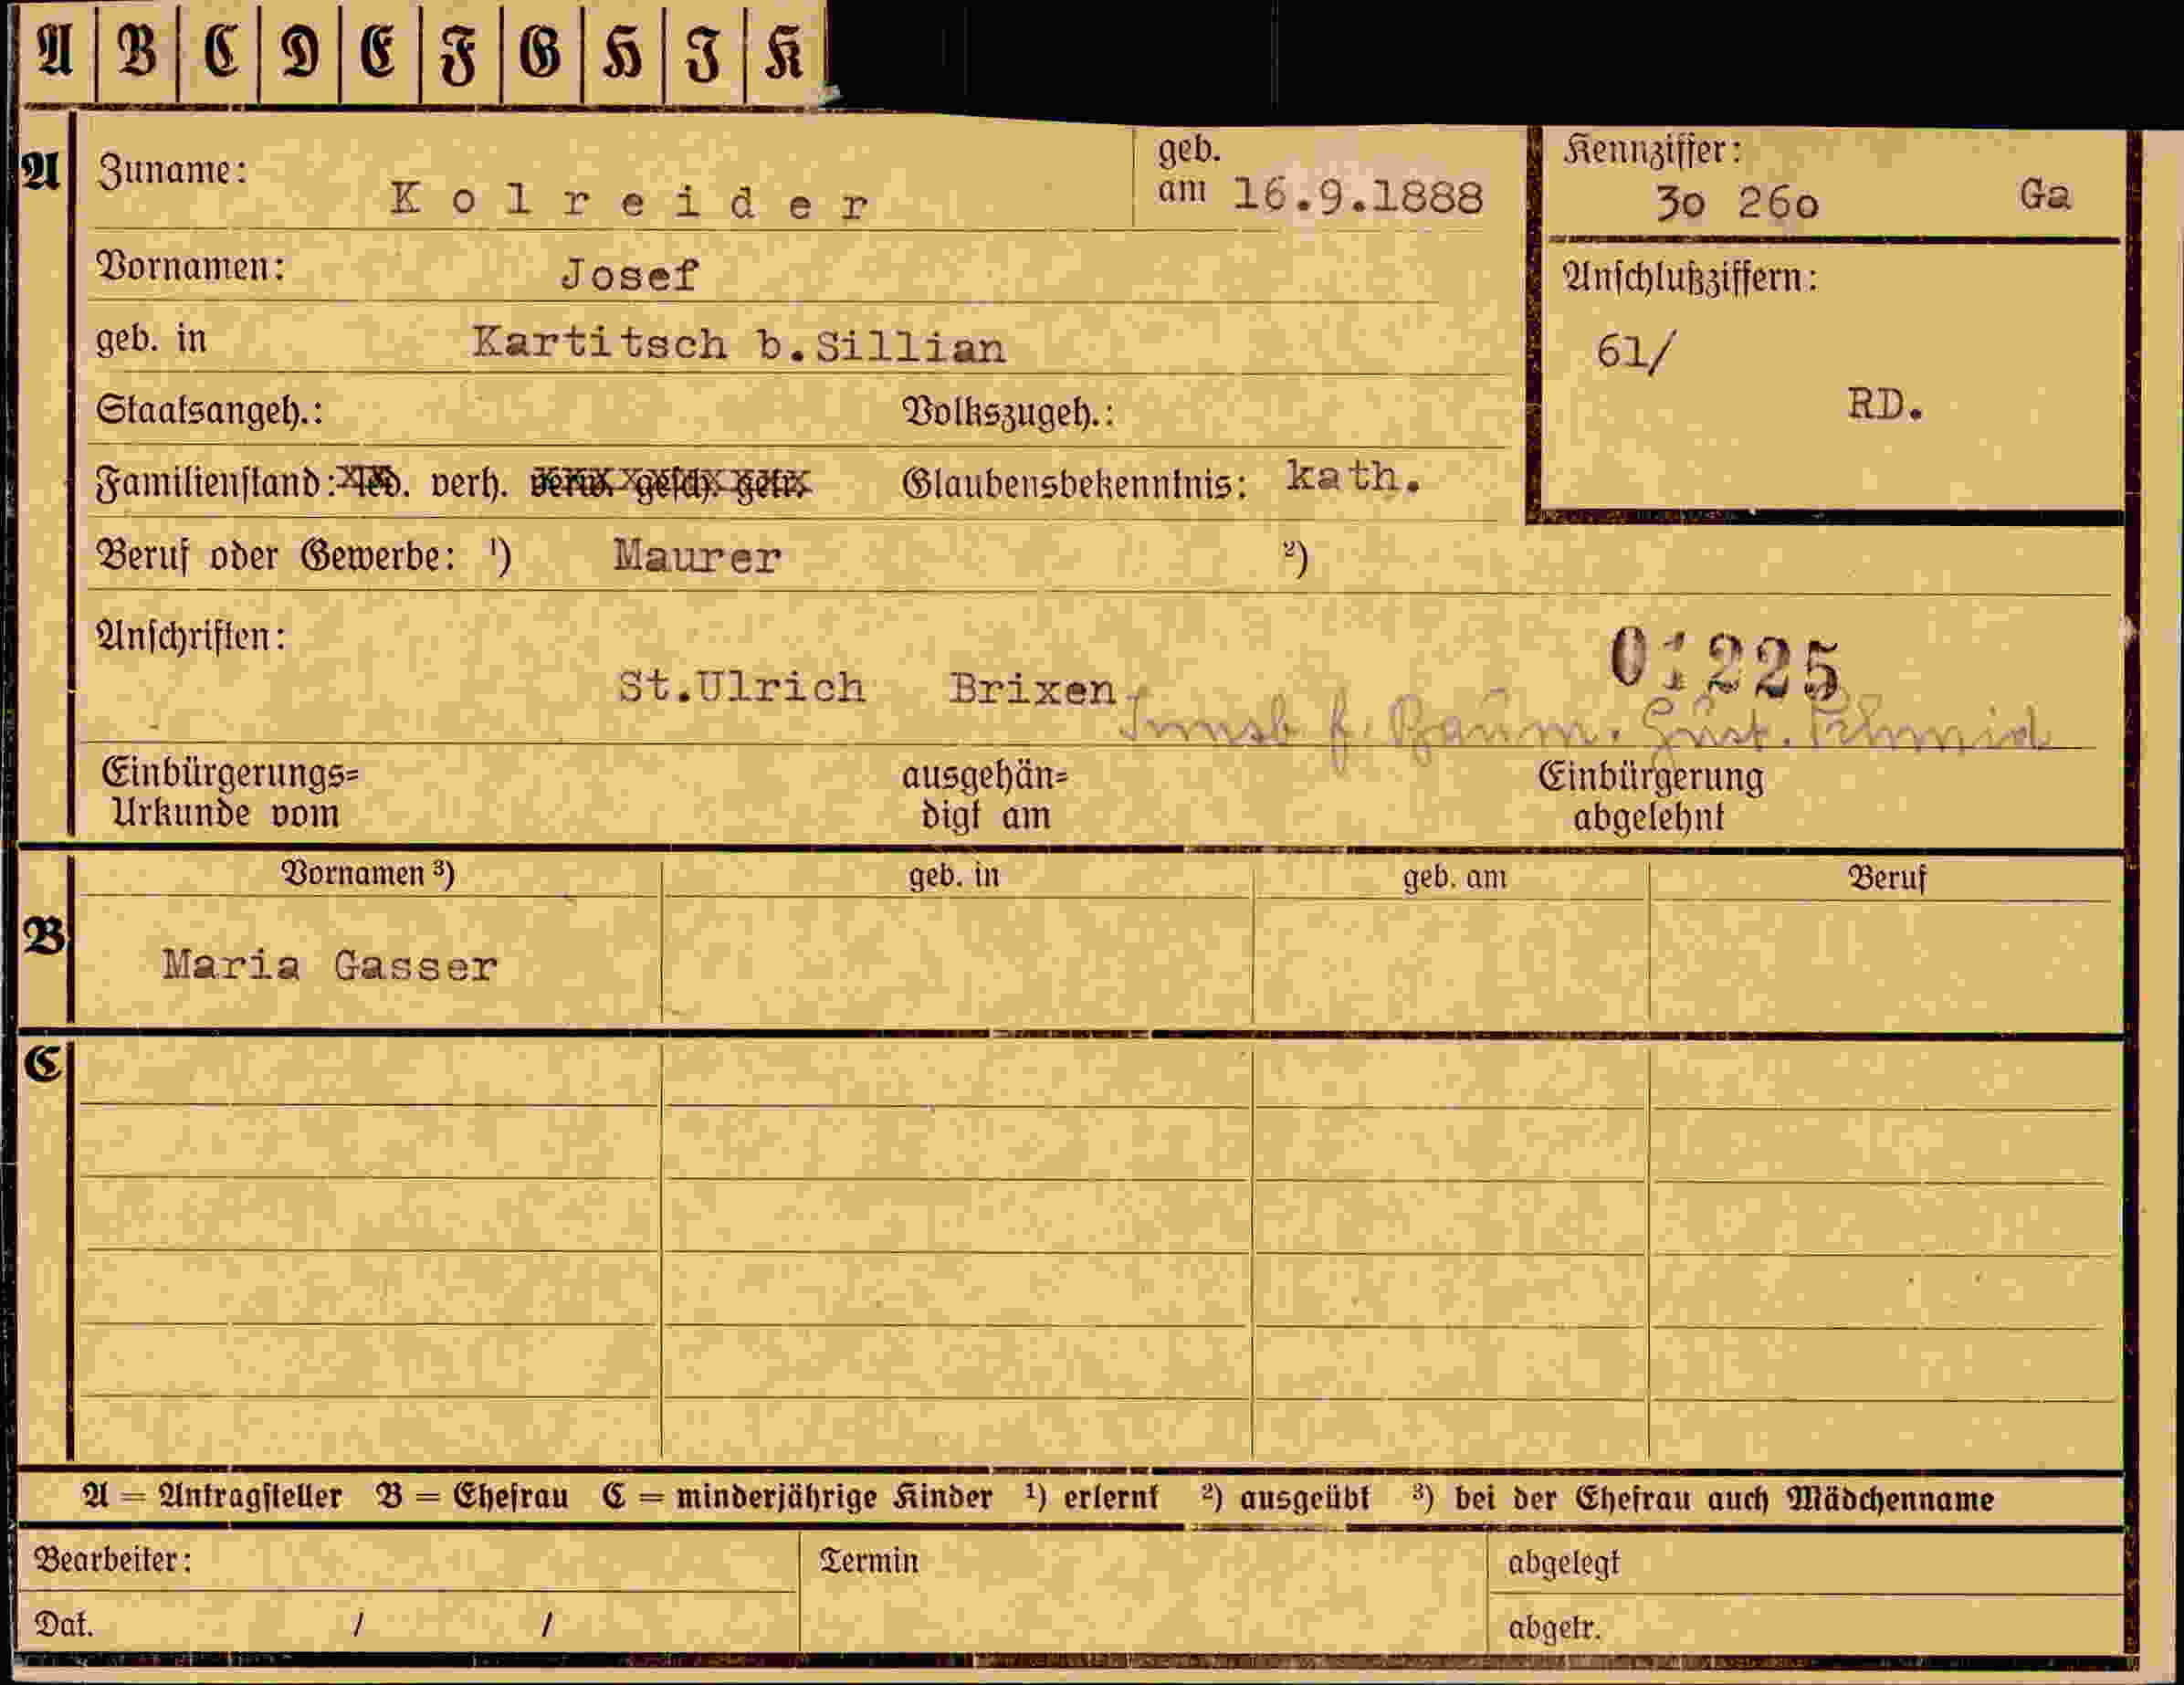 A B C D E F G H I K
A Zuname: Kolreider geb. am 16.9.1888 Kennziffer: 30 260 Ga
Vornamen: Josef Anschlußziffern:
geb. in Kartitsch b.Sillian 61/
Staatsangeh.: Volkszugeh.: RD.
Familienstand: led. verh. verw. gesch. getr. Glaubensbekenntnis: kath.
Beruf oder Gewerbe: ¹) Maurer ²)
Anschriften: 01225
St.Ulrich Brixen
Innsb. f. Baum. Gust. Schmid
Einbürgerungs= ausgehän= Einbürgerung
Urkunde vom digt am abgelehnt
B Vornamen ³) geb. in geb. am Beruf
Maria Gasser
C
A = Antragsteller B = Ehefrau C = minderjährige Kinder ¹) erlernt ²) ausgeübt ³) bei der Ehefrau auch Mädchenname
Bearbeiter: Termin abgelegt
Dat. / / abgetr.